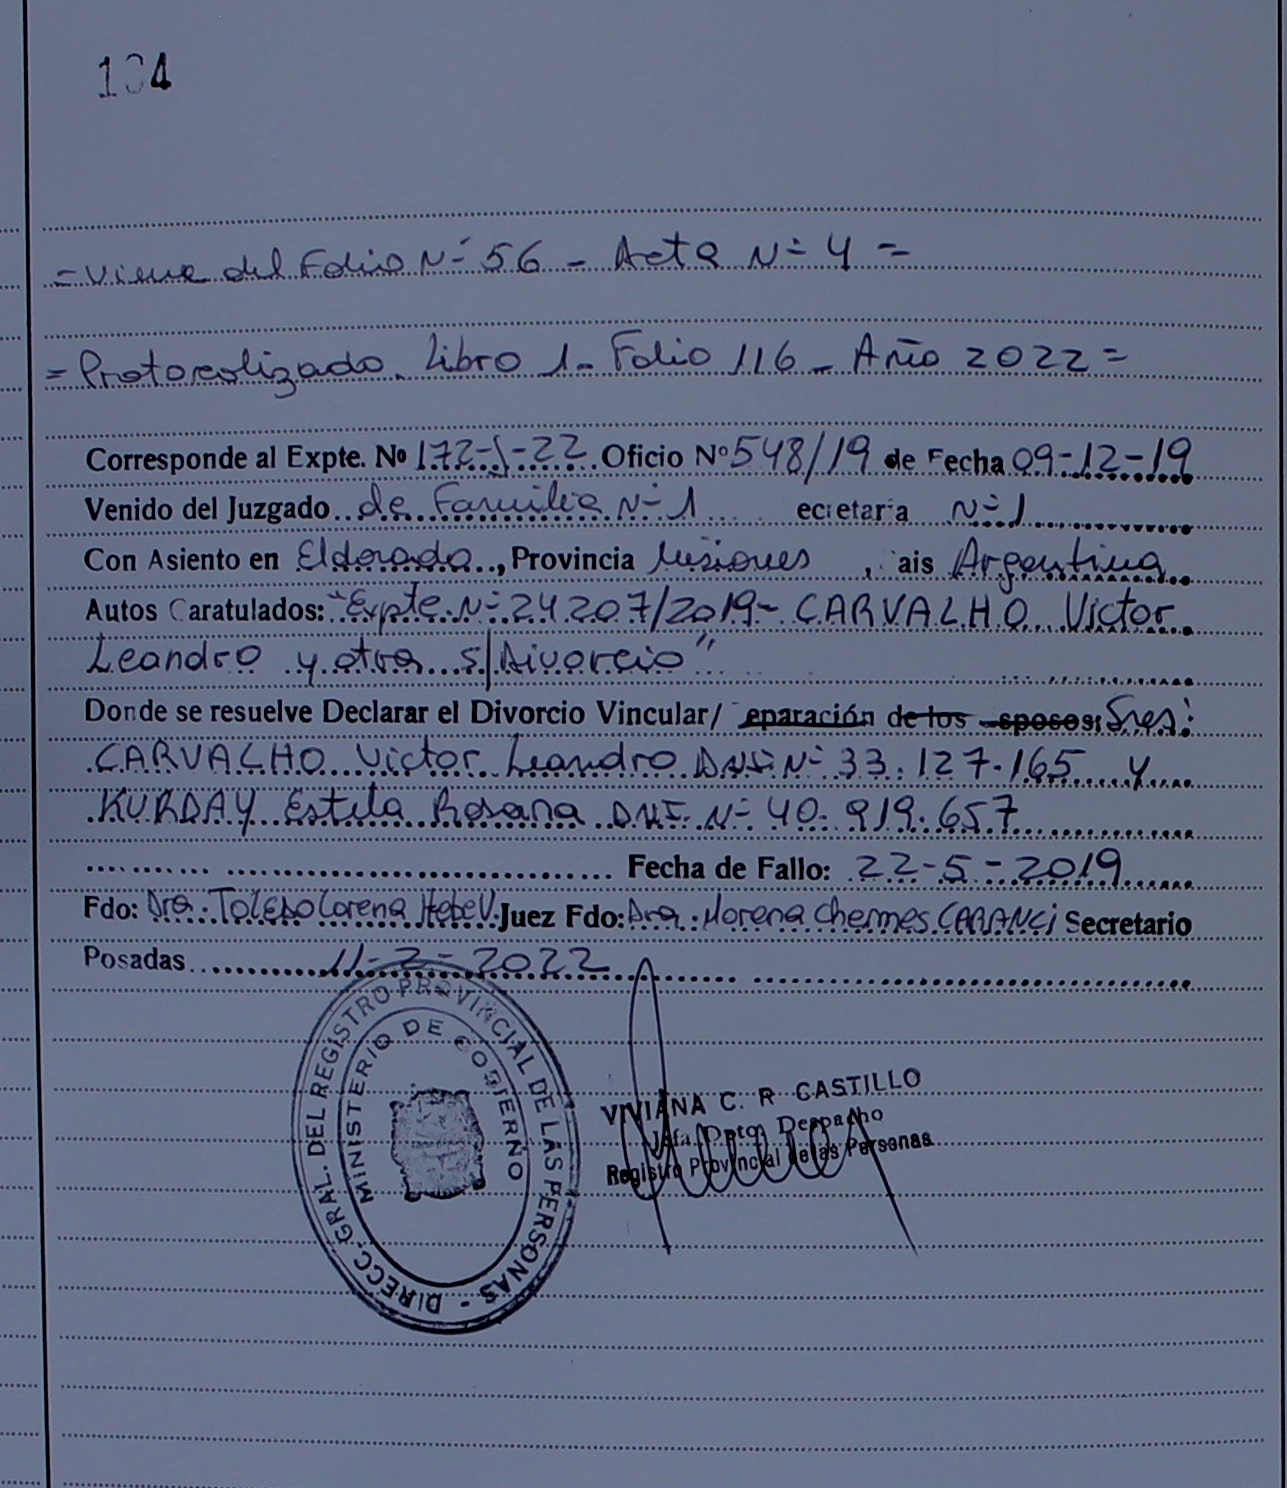 104
= Viene del Folio Nº 56 - Acta Nº 4 =
= Protocolizado. Libro 1 - Folio 116 - Año 2022 =
Corresponde al Expte. Nº 172-J-22 Oficio Nº 548/19 de Fecha 09-12-19
Venido del Juzgado de Familia Nº 1 ecretaria Nº 1
Con Asiento en Eldorado, Provincia Misiones, ais Argentina
Autos Caratulados: "Expte. Nº 24207/2019 - CARVALHO Victor
Leandro y otra s/Divorcio"
Donde se resuelve Declarar el Divorcio Vincular/ eparación de los sposos: Sres:
CARVALHO Victor Leandro DNI Nº 33.127.165 y
KURDAY Estela Rosana DNI Nº 40.919.657
Fecha de Fallo: 22-5-2019
Fdo: Dra. TOLEDO Lorena Hebe V. Juez Fdo: Dra. Morena Chermes CARANCI Secretario
Posadas 11-2-2022
DIRECC. GRAL. DEL REGISTRO PROVINCIAL DE LAS PERSONAS -
MINISTERIO DE GOBIERNO
VIVIANA C. R. CASTILLO
Jefa Dpto. Despacho
Registro Provincial de las Personas